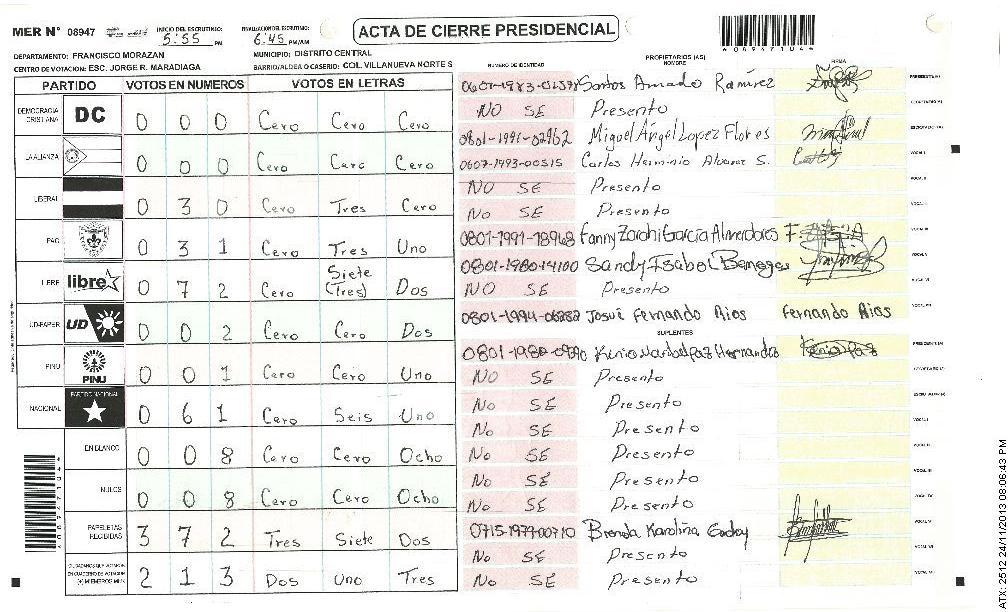 MER N° 08947
INICIO DEL ESCRUTINIO:
5:55 PM
FINALIZACION DEL ESCRUTINIO:
6:45 PM/AM
ACTA DE CIERRE PRESIDENCIAL
DEPARTAMENTO: FRANCISCO MORAZAN
MUNICIPIO: DISTRITO CENTRAL
CENTRO DE VOTACION: ESC. JORGE R. MARADIAGA
BARRIO/ALDEA O CASERIO: COL. VILLANUEVA NORTE S
PARTIDO VOTOS EN NUMEROS VOTOS EN LETRAS
DEMOCRACIA CRISTIANA DC 0 0 0 Cero Cero Cero
LA ALIANZA 0 0 0 Cero Cero Cero
LIBERAL 0 3 0 Cero Tres Cero
PAC 0 3 1 Cero Tres Uno
LIBRE libre 0 7 2 Cero Siete (Tres) Dos
UD-FAPER UD 0 0 2 Cero Cero Dos
PINU PINU 0 0 1 Cero Cero Uno
NACIONAL PARTIDO NACIONAL 0 6 1 Cero Seis Uno
EN BLANCO 0 0 8 Cero Cero Ocho
NULOS 0 0 8 Cero Cero Ocho
PAPELETAS RECIBIDAS 3 7 2 Tres Siete Dos
CIUDADANOS QUE VOTARON EN CUADERNO DE VOTACION (+) MIEMBROS MER 2 1 3 Dos Uno Tres
NUMERO DE IDENTIDAD PROPIETARIOS (AS) NOMBRE FIRMA
Santos Amado Ramirez PRESIDENTE(A)
NO SE Presento SECRETARIO(A)
0801-1991-02962 Miguel Ángel Lopez Flores ESCRUTADOR(A)
0607-1993-00515 Carlos Herminio Alvarez S. VOCAL I
NO SE Presento VOCAL II
No SE Presento VOCAL III
0801-1991-18968 Fanny Zarahi Garcia Almendares VOCAL IV
0801-1980-14100 Sandy Isabel Banegas VOCAL V
NO SE Presento VOCAL VI
0801-1994-06282 Josué Fernando Rios Fernando Rios VOCAL VII
SUPLENTES
Kenia Paz PRESIDENTE(A)
NO SE Presento SECRETARIO(A)
No SE Presento ESCRUTADOR(A)
No SE Presento VOCAL I
No SE Presento VOCAL II
No SE Presento VOCAL III
No SE Presento VOCAL IV
0715-1977-00710 Brenda Karolina Godoy VOCAL V
No SE Presento VOCAL VI
No SE Presento VOCAL VII
ATX 2512 24/11/2013 08:06:43 PM